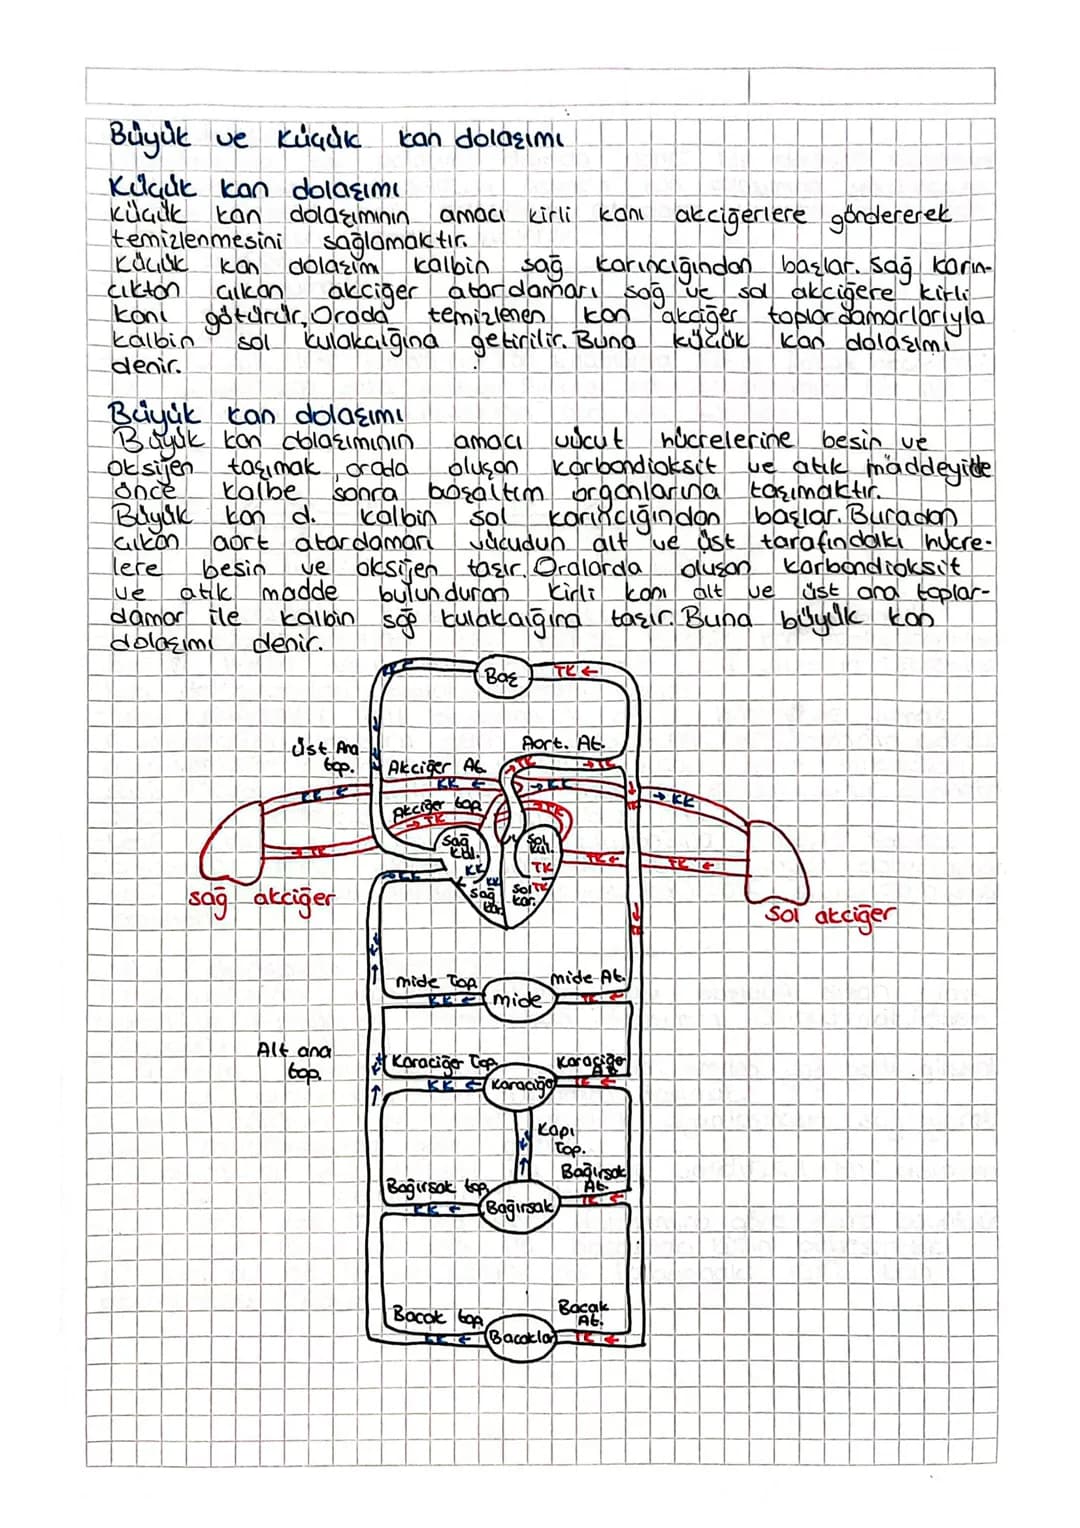 Büyük ve Küçük kan dolaşımı
Küçük kan dolaşımı
Küçük kan dolaşımının amacı kirli kanı akciğerlere göndererek
temizlenmesini sağlamaktır.
Küçük kan dolaşımı kalbin sağ karıncığından başlar. Sağ karın-
cıktan çıkan akciğer atardamarı sağ ve sol akciğere kirli
kanı götürür. Orada temizlenen kan akciğer toplardamarlarıyla
kalbin sol kulakcığına getirilir. Buna küçük kan dolaşımı
denir.
Büyük kan dolaşımı
Büyük kan dolaşımının amacı vücut hücrelerine besin ve
oksijen taşımak, orada oluşan karbondioksit ve atık maddeyide
önce kalbe sonra boşaltım organlarına taşımaktır.
Büyük kan d. kalbin sol karıncığından başlar. Buradan
çıkan aort atardamarı vücudun alt ve üst tarafındaki hücre-
lere besin ve oksijen taşır. Oralarda oluşan karbondioksit
ve atık madde bulunduran kirli kanı alt ve üst ana toplar-
damar ile kalbin sağ kulakcığına taşır. Buna büyük kan
dolaşımı denir.
KK
Baş
TK
Üst Ana
top.
Aort. At.
Akciğer At.
TK
TK
KK
KK
KK
KK
Akciğer top.
TK
TK
Sağ
kul.
Sol
kul.
TK
TK
TK
TK
KK
KK
KK
Sağ
kar.
Sol
kar.
TK
sağ akciğer
Sol akciğer
mide Top.
mide At.
KK
mide
TK
Alt ana
top.
Karaciğer Top.
Karaciğer
At.
KK
Karaciğer
TK
Kapı
Top.
Bağırsak
At.
Bağırsak top.
KK
Bağırsak
TK
Bacak top.
Bacak
At.
KK
Bacaklar
TK